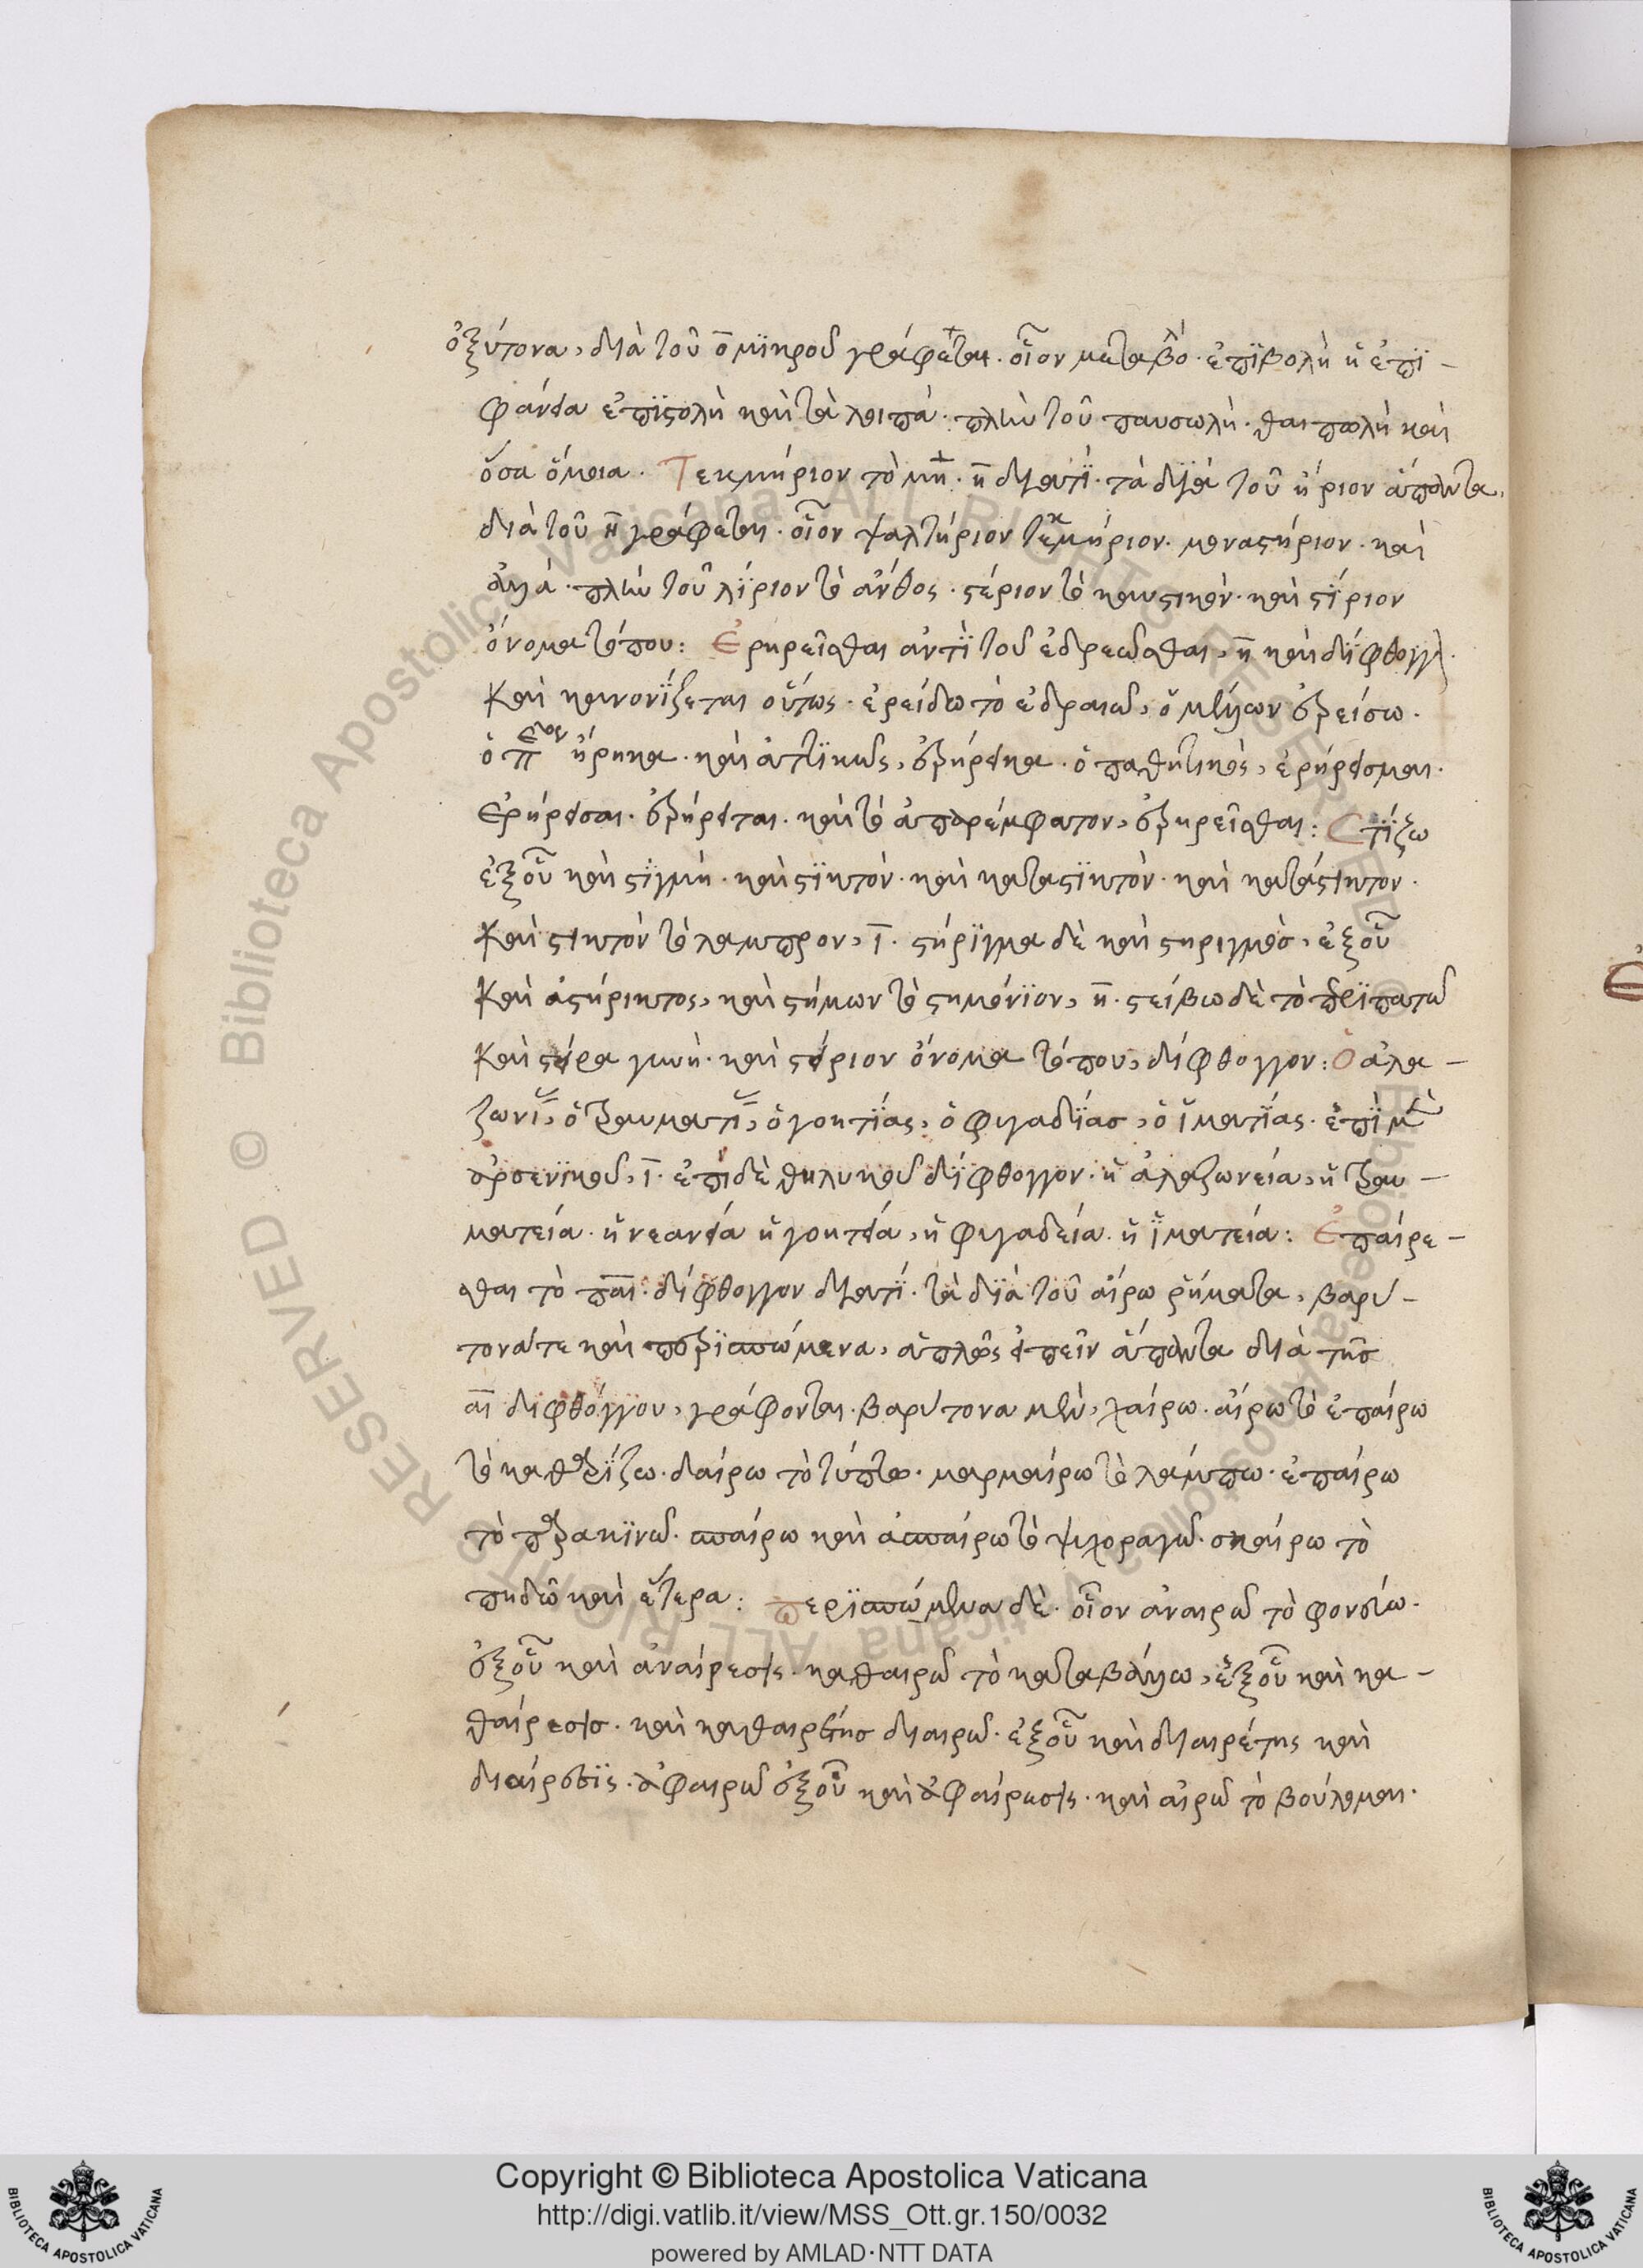 ὀξύτονα, διὰ τοῦ ο̅ μϊκροῦ γράφεται. οἷον μεταβολή. ἐπϊβολὴ ἢ ἐπϊ-
φάνεια ἐπϊστολὴ καὶ τὰ λοιπά. πλὴν τοῦ παυσωλὴ. καὶ
ὅσα ὅμοια. Τεκμήριον τὸ μη. η̅ διατί. τὰ διὰ τοῦ ήριον ἅπαντα,
διὰ τοῦ η̅ γράφεται. οἷον ψαλτήριον τεκμήριον. μοναστήριον. καὶ
ἄλλα. πλὴν τοῦ λίριον τὸ ἄνθος. στέριον τὸ καυστικόν. καὶ στίριον
ὄνομα τόπου: Ἐρηρεῖσθαι ἀντὶ τοῦ ἑδρεῶσθαι, η̅ καὶ δίφθογγ
Καὶ κανονίζεται οὕτως. ἐρείδω τὸ ἑδραιῶ, ὁ μέλλων ἐρείσω.
ὁ π ἤρηκα. καὶ ἀττικῶς, ἐρήρεικα. ὁ παθητικὸς, ἐρήρεισμαι.
Ἐρήρεισαι. ἐρήρεισται. καὶ τὸ ἀπαρέμφατον, ἐρηρεῖσθαι: Στίζω
ἐξοῦ καὶ στϊγμή. καὶ στϊκτόν. καὶ κατάστϊκτόν. καὶ κατάστικτον.
Καὶ στικτὸν τὸ λαμπρον, ι̅. στήριγμα δὲ καὶ στηριγμόσ, ἐξοῦ
Καὶ ἀστήρικτος, καὶ στήμων τὸ στημόνϊον, η̅. στείβω δὲ τὸ περϊπατῶ
Καὶ στεῖρα γυνή. καὶ στείριον ὄνομα τόπου, δίφθογγον: Ὁ ἀλα-
ζωνίας, ὁ τραυματίας, ὁ γοητίας, ὁ φυγαδίασ, ὁ ἱματίας. ἐπὶ μὲν
ἀρσενϊκοῦ, ι̅. ἐπὶ δὲ θηλυκοῦ δίφθογγον. ἡ ἀλαζωνεία, ἡ τραυ-
ματεία. ἡ νεανεία ἡ γοητεία, ἡ φυγαδεία. ἡ ἱματεία: Ἐπαίρε-
σθαι τὸ παι. δίφθογγον διατί. τὰ διὰ τοῦ αίρω ῥήματα, βαρύ-
τονα τε καὶ περϊσπώμενα, ἁπλῶς εἰπεῖν ἅπαντα διὰ τῆσ
αι̅ διφθόγγου, γράφονται. βαρύτονα μὲν, χαίρω. αἴρω τὸ ἐπαίρω
τὸ καθαρίζω. δαίρω τὸ τύπτω. μαρμαίρω τὸ λάμπω. ἐπαίρω
τὸ παρακϊνῶ. σπαίρω καὶ ἀσπαίρω τὸ ψυχοραγῶ. σκαίρω τὸ
πηδῶ καὶ ἕτερα: Περϊσπώμενα δὲ. οἷον ἀναιρῶ τὸ φονεύω.
ἐξοῦ καὶ ἀναίρεσις. καθαιρῶ τὸ καταβάλλω, ἐξοῦ καὶ κα-
θαίρεσισ. καὶ καθαιρέτησ διαιρῶ. ἐξοῦ καὶ διαιρέτης καὶ
διαίρεσϊς. ἀφαιρῶ ἐξοῦ καὶ ἀφαίρεσις. καὶ αἱρῶ τὸ βούλομαι.
Copyright © Biblioteca Apostolica Vaticana
http://digi.vatlib.it/view/MSS_Ott.gr.150/0032
powered by AMLAD·NTT DATA